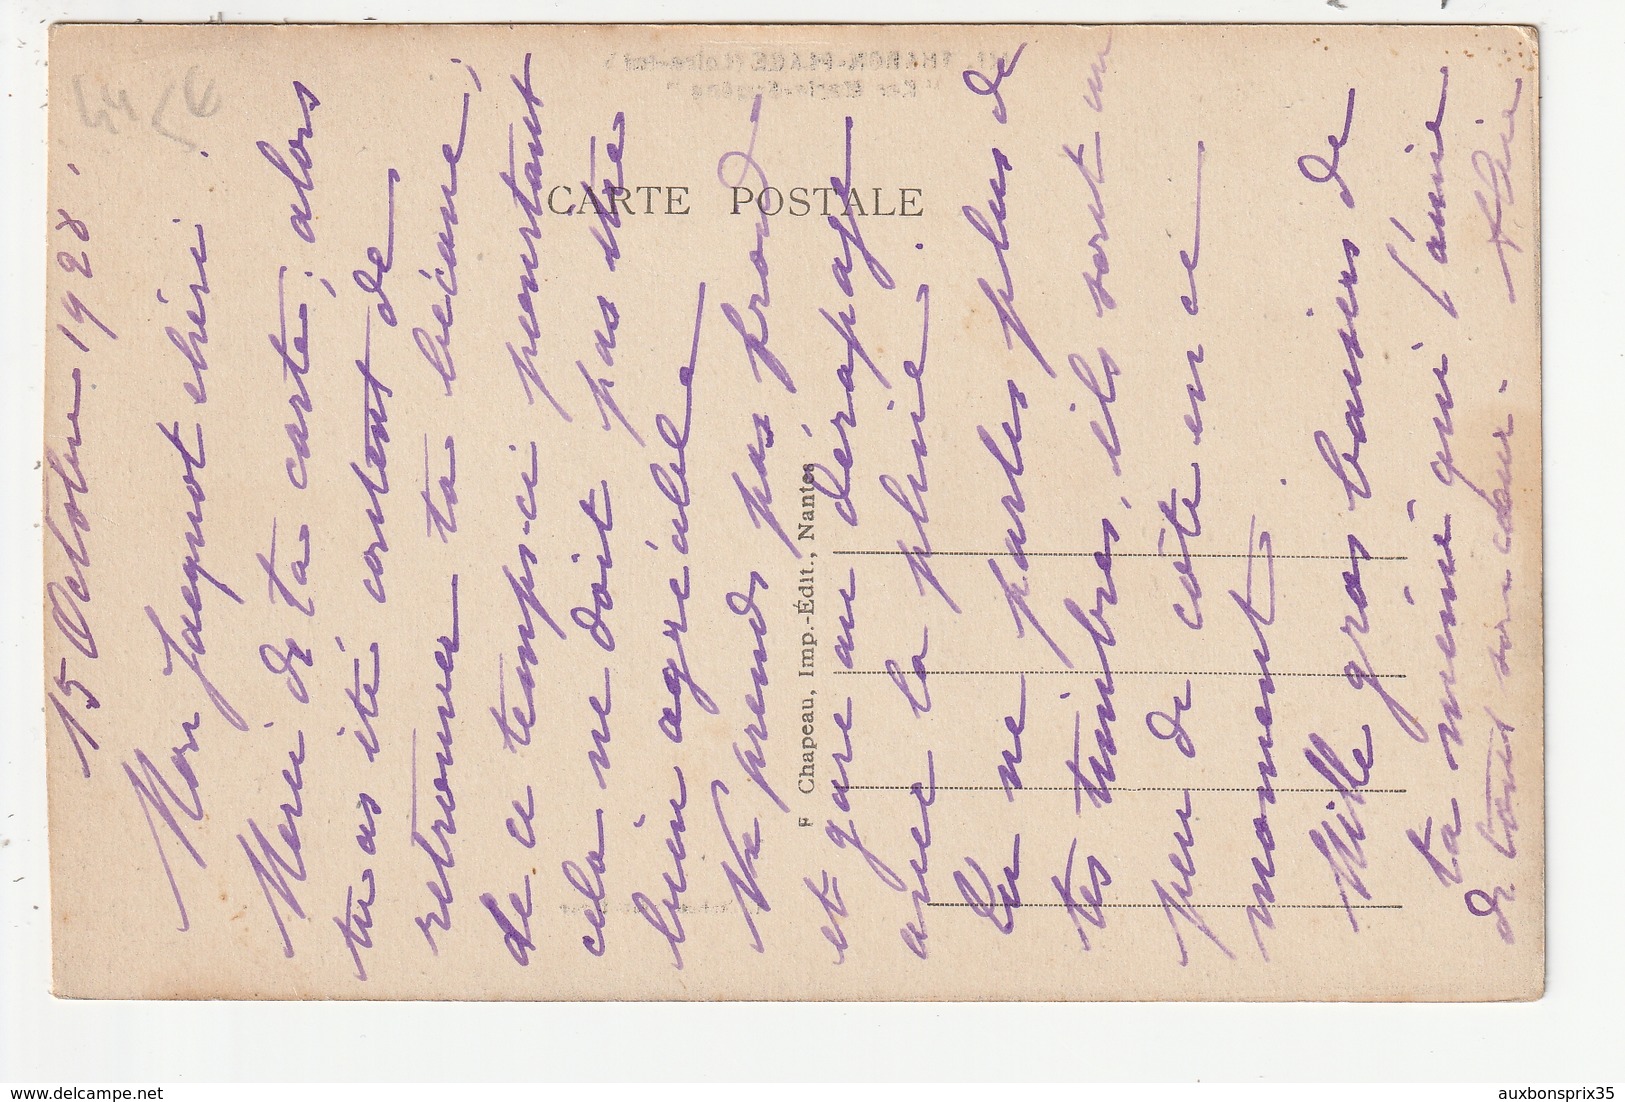 15 Octobre 1928.
Mon Jacquot chéri.
Merci de ta carte ; alors
tu as été content de
retrouver ta bécane ;
de ce temps-ci pourtant
cela ne doit pas être
bien agréable
Ne prends pas froid
et gare au dérapage
avec la pluie.
Tu ne parles plus de
tes timbres, ils sont un
peu de côté en ce
moment.
Mille gros baisers de
ta mémé qui t'aime
de tout son cœur.
CARTE POSTALE
F Chapeau, Imp.-Édit., Nantes
44 5€
delcampe.net
auxbonsprix35